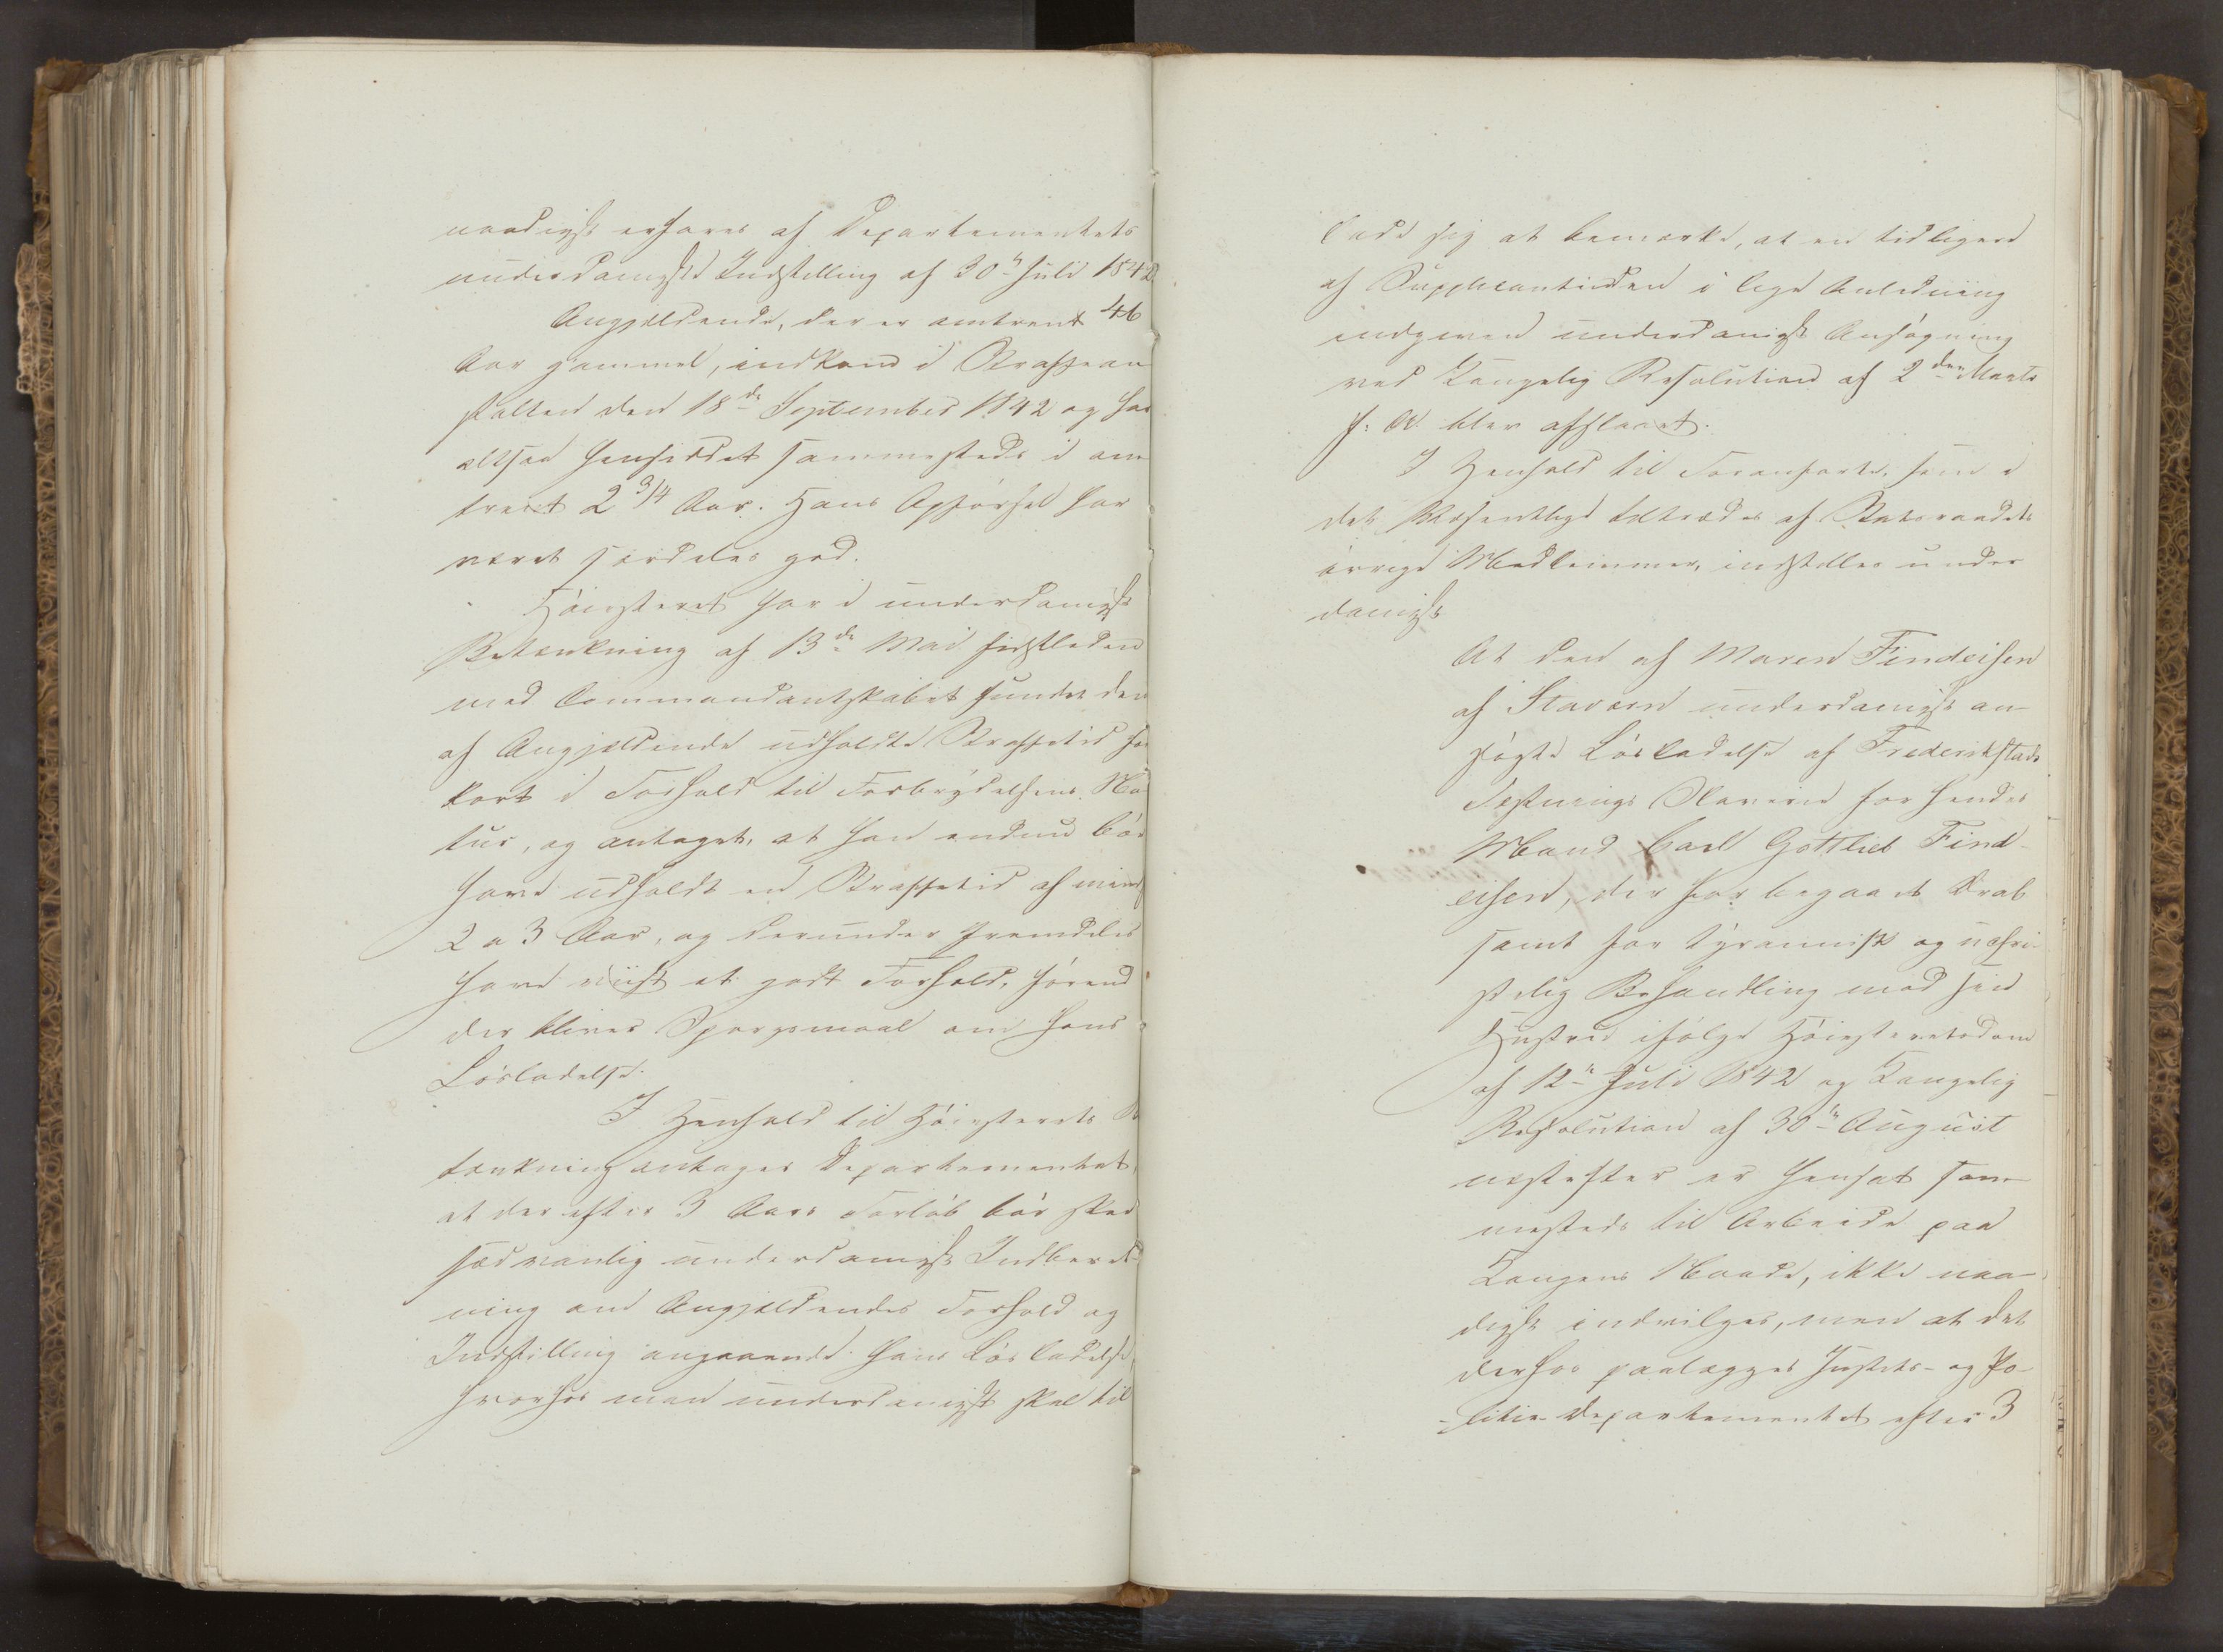 naadigst erfares af Departementets
underdanigste Indstilling af 30te Juli 1842.
Angjeldende, der er omtrent 46
Aar gammel, indkom i Straffean-
stalten den 18de September 1842 og har
altsaa henseddet sammesteds i om-
trent 2 3/4 Aar. Hans Opførsel har
været særdeles god.
Høiesteret har i underdanigst
Betænkning af 13de Mai sidstleden
med Commandantskabet fundet den
af Angjeldende udholdte Straffetid for
kort i Forhold til Forbrydelsens Na-
tur, og antaget, at han endnu bør
have udholdt en Straffetid af mindst
2 a 3 Aar, og derunder fremdeles
have viist et godt Forhold, førend
der bliver Spørgsmaal om hans
Løsladelse.
I Henhold til Høiesterets Be-
tænkning antager Departementet,
at der efter 3 Aars Forløb bør skee
sædvanlig underdanigst Indberet-
ning om Angjeldendes Forhold og
Indstilling angaaende hans Løsladelse,
hvorhos man underdanigst skal til-
lade sig at bemærke, at en tidligere
af Supplicantinden i lige Anledning
indgiven underdanigst Ansøgning
ved Kongelig Resolution af 2den Marts
f: A. blev afslaaet.
I Henhold til Foranførte, som i
det Væsentlige tiltrædes af Statsraadets
øvrige Medlemmer, indstilles under-
danigst
At den af Maren Findeisen
af Stavern underdanigst an-
søgte Løsladelse af Frederikstads
Fæstnings Slaveri for hendes
Mand Carl Gottlieb Find-
eisen, der for begaaet Drab
samt for tyrannisk og uchri-
stelig Behandling mod sin
Hustru ifølge Høiesteretsdom
af 12te Juli 1842 og Kongelig
Resolution af 30te August
næstefter er hensat sam-
mesteds til Arbeide paa
Kongens Naade, ikke naa-
digst indvilges, men at det
derhos paalægges Justits- og Po-
litie-Departementet efter 3